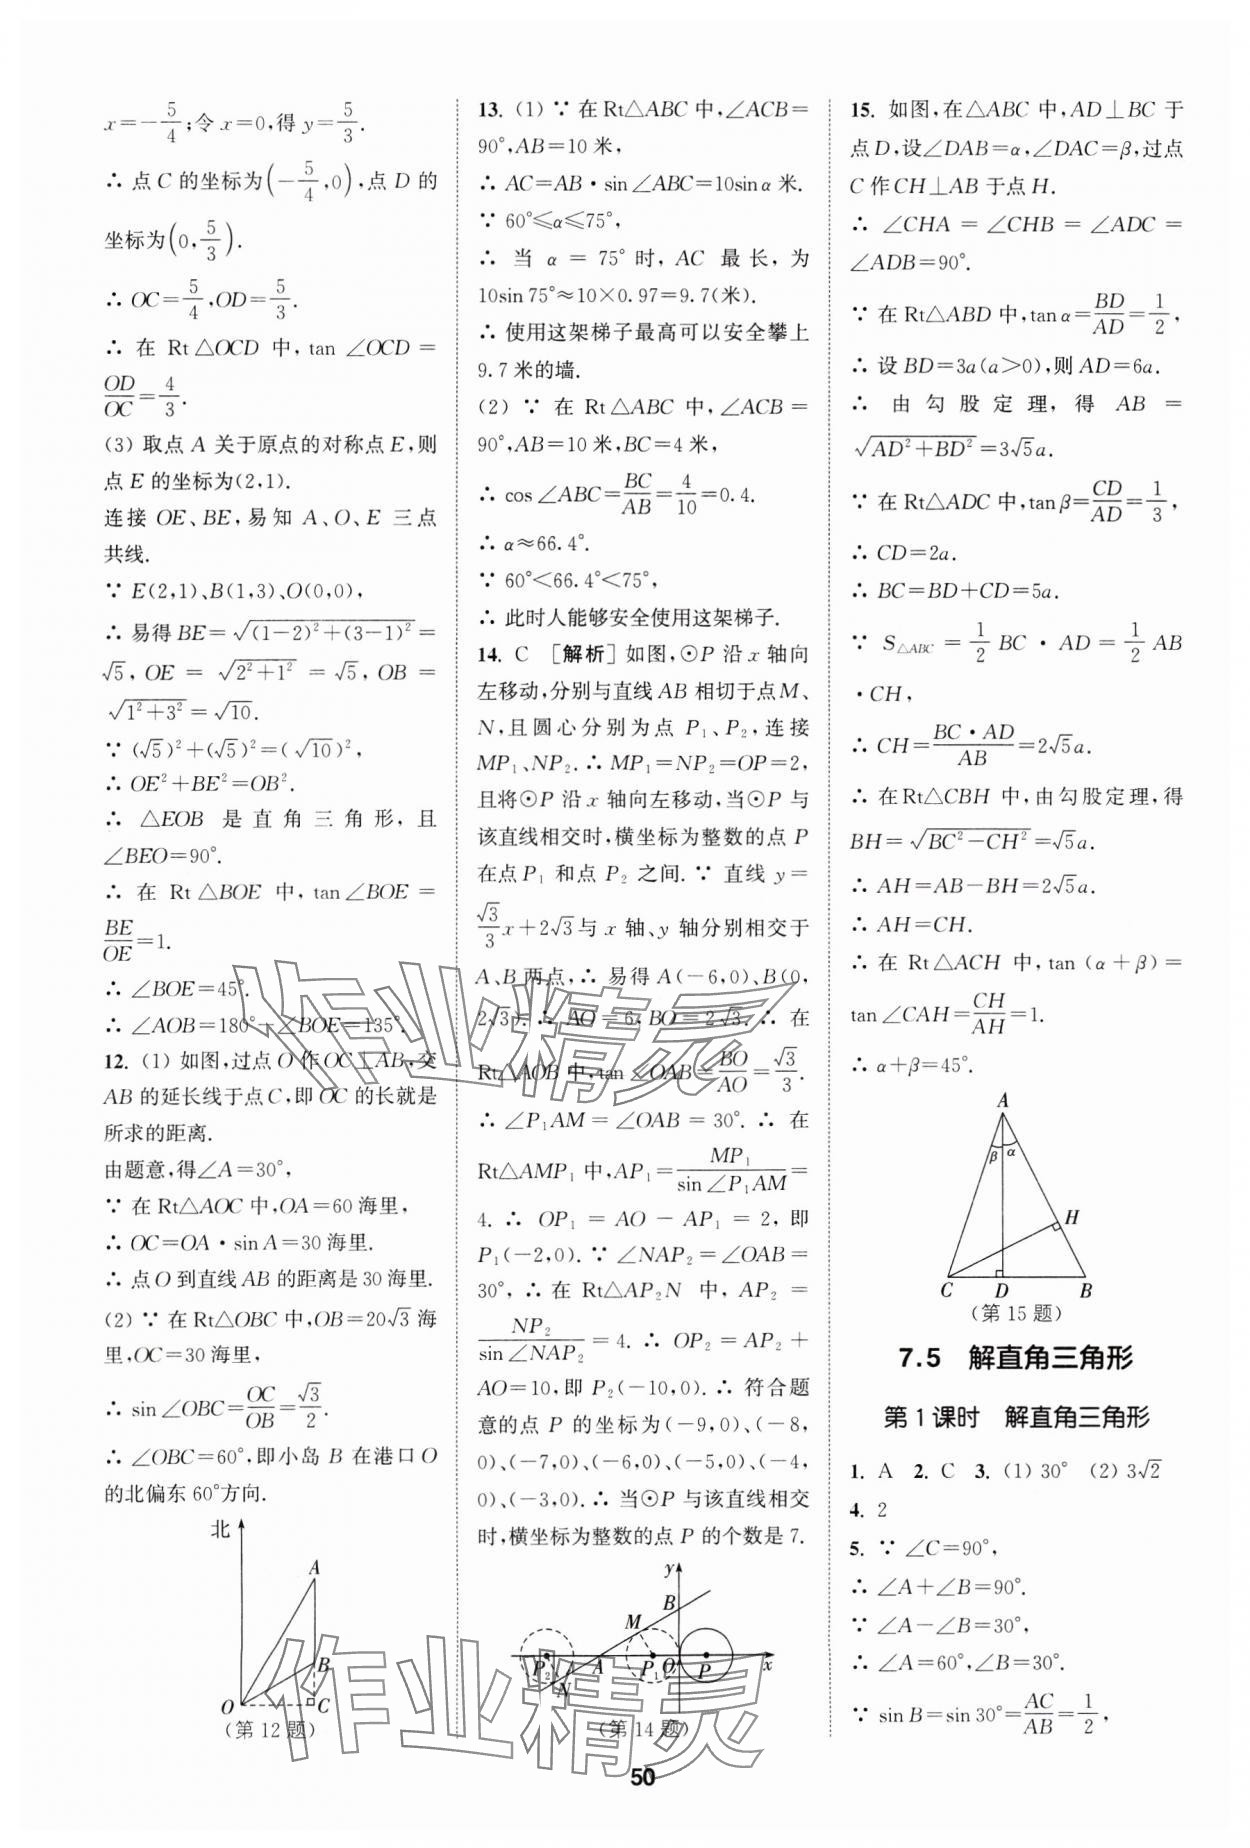 x=-5/4;令 x=0,得 y=5/3.
∴ 点 C 的坐标为(-5/4,0),点 D 的
坐标为(0,5/3).
∴ OC=5/4,OD=5/3.
∴ 在 Rt△OCD 中,tan ∠OCD =
OD/OC=4/3.
(3) 取点 A 关于原点的对称点 E,则
点 E 的坐标为(2,1).
连接 OE、BE,易知 A、O、E 三点
共线.
∵ E(2,1)、B(1,3)、O(0,0),
∴ 易得 BE=√((1-2)²+(3-1)²)=
√5,OE = √(2²+1²) = √5,OB =
√(1²+3²)=√10.
∵ (√5)²+(√5)²=(√10)²,
∴ OE²+BE²=OB².
∴ △EOB 是直角三角形,且
∠BEO=90°.
∴ 在 Rt△BOE 中,tan∠BOE =
BE/OE=1.
∴ ∠BOE=45°.
∴ ∠AOB=180°-∠BOE=135°.
12. (1) 如图,过点 O 作 OC⊥AB,交
AB 的延长线于点 C,即 OC 的长就是
所求的距离.
由题意,得∠A=30°,
∵ 在 Rt△AOC 中,OA=60 海里,
∴ OC=OA·sin A=30 海里.
∴ 点 O 到直线 AB 的距离是 30 海里.
(2) ∵ 在 Rt△OBC 中,OB=20√3 海
里,OC=30 海里,
∴ sin ∠OBC=OC/OB=√3/2.
∴ ∠OBC=60°,即小岛 B 在港口 O
的北偏东 60°方向.
北
A
B
O
C
(第 12 题)
13. (1) ∵ 在 Rt△ABC 中,∠ACB=
90°,AB=10 米,
∴ AC=AB·sin ∠ABC=10sin α 米.
∵ 60°≤α≤75°,
∴ 当 α = 75°时,AC 最长,为
10sin 75°≈10×0.97=9.7(米).
∴ 使用这架梯子最高可以安全攀上
9.7 米的墙.
(2) ∵ 在 Rt△ABC 中,∠ACB =
90°,AB=10 米,BC=4 米,
∴ cos ∠ABC=BC/AB=4/10=0.4.
∴ α≈66.4°.
∵ 60°<66.4°<75°,
∴ 此时人能够安全使用这架梯子.
14. C [解析] 如图,⊙P 沿 x 轴向
左移动,分别与直线 AB 相切于点 M、
N,且圆心分别为点 P₁、P₂,连接
MP₁、NP₂. ∴ MP₁=NP₂=OP=2,
且将⊙P 沿 x 轴向左移动,当⊙P 与
该直线相交时,横坐标为整数的点 P
在点 P₁ 和点 P₂ 之间. ∵ 直线 y=
√3/3x+2√3与 x 轴、y 轴分别相交于
A、B 两点,∴ 易得 A(-6,0)、B(0,
2√3). ∴ AO=6,BO=2√3. ∴ 在
Rt△AOB 中,tan ∠OAB=BO/AO=√3/3.
∴ ∠P₁AM = ∠OAB = 30°. ∴ 在
Rt△AMP₁ 中,AP₁=MP₁/sin ∠P₁AM=
4. ∴ OP₁ = AO - AP₁ = 2,即
P₁(-2,0). ∵ ∠NAP₂=∠OAB=
30°,∴ 在 Rt△AP₂N 中,AP₂ =
NP₂/sin ∠NAP₂=4. ∴ OP₂=AP₂+
AO=10,即 P₂(-10,0). ∴ 符合题
意的点 P 的坐标为(-9,0)、(-8,
0)、(-7,0)、(-6,0)、(-5,0)、(-4,
0)、(-3,0). ∴ 当⊙P 与该直线相交
时,横坐标为整数的点 P 的个数是 7.
y
B
M
P₂
A
P₁
O
P
x
N
(第 14 题)
15. 如图,在△ABC 中,AD⊥BC 于
点 D,设∠DAB=α,∠DAC=β,过点
C 作 CH⊥AB 于点 H.
∴ ∠CHA = ∠CHB = ∠ADC =
∠ADB=90°.
∵ 在 Rt△ABD 中,tan α=BD/AD=1/2,
∴ 设 BD=3a(a>0),则 AD=6a.
∴ 由勾股定理,得 AB =
√(AD²+BD²)=3√5a.
∵ 在 Rt△ADC 中,tan β=CD/AD=1/3,
∴ CD=2a.
∴ BC=BD+CD=5a.
∵ S△ABC = 1/2 BC · AD = 1/2 AB
·CH,
∴ CH=BC·AD/AB=2√5a.
∴ 在 Rt△CBH 中,由勾股定理,得
BH=√(BC²-CH²)=√5a.
∴ AH=AB-BH=2√5a.
∴ AH=CH.
∴ 在 Rt△ACH 中,tan (α+β)=
tan ∠CAH=CH/AH=1.
∴ α+β=45°.
A
β α
H
C D B
(第 15 题)
7.5 解直角三角形
第 1 课时 解直角三角形
1. A 2. C 3. (1) 30° (2) 3√2
4. 2
5. ∵ ∠C=90°,
∴ ∠A+∠B=90°.
∵ ∠A-∠B=30°,
∴ ∠A=60°,∠B=30°.
∵ sin B=sin 30°=AC/AB=1/2,
50
作业精灵
作业精灵